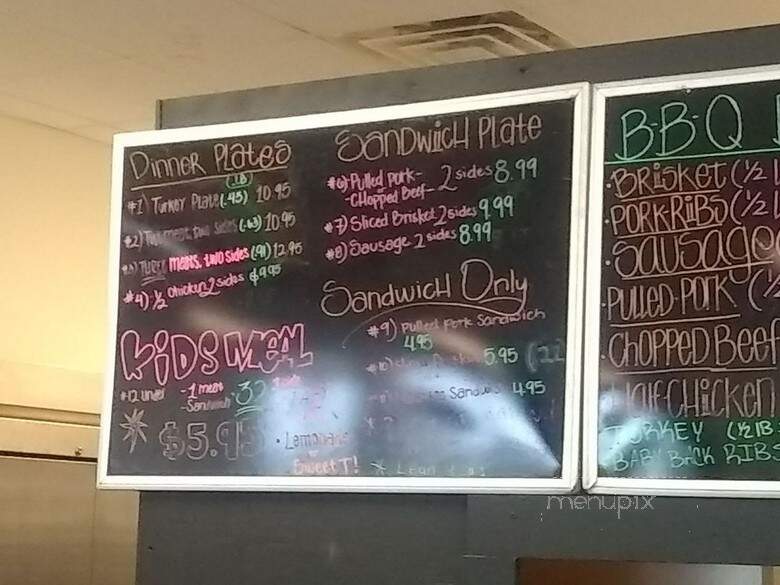 Dinner Plates
(.LB)
#1) Turkey Plate (.45) 10.95
#2) Two meat, two sides (.63) 10.95
meats, two sides (.91) 12.95
#4) ½ chicken 2 sides $9.95
KiDS MEAL
#12 under
-1 meat
-Sandwich
$5.95
• Lemonade
or
Sweet T!
SANDWicH PLATE
#6) Pulled Pork-
-CHopped Beef- 2 sides 8.99
#7) Sliced Brisket 2 sides 9.99
#8) Sausage 2 sides 8.99
Sandwich Only
#9) Pulled Pork Sandwich
4.95
5.95
4.95
B-B-Q
•BRiSKET (½
•PORK-RiBS (½
•SAUSAGE
•PULLED-PORK (½
•CHOPPED BEEF
HALF CHiCKEN
TURKEY (½ lB
BABY BACK RIBS
menupix